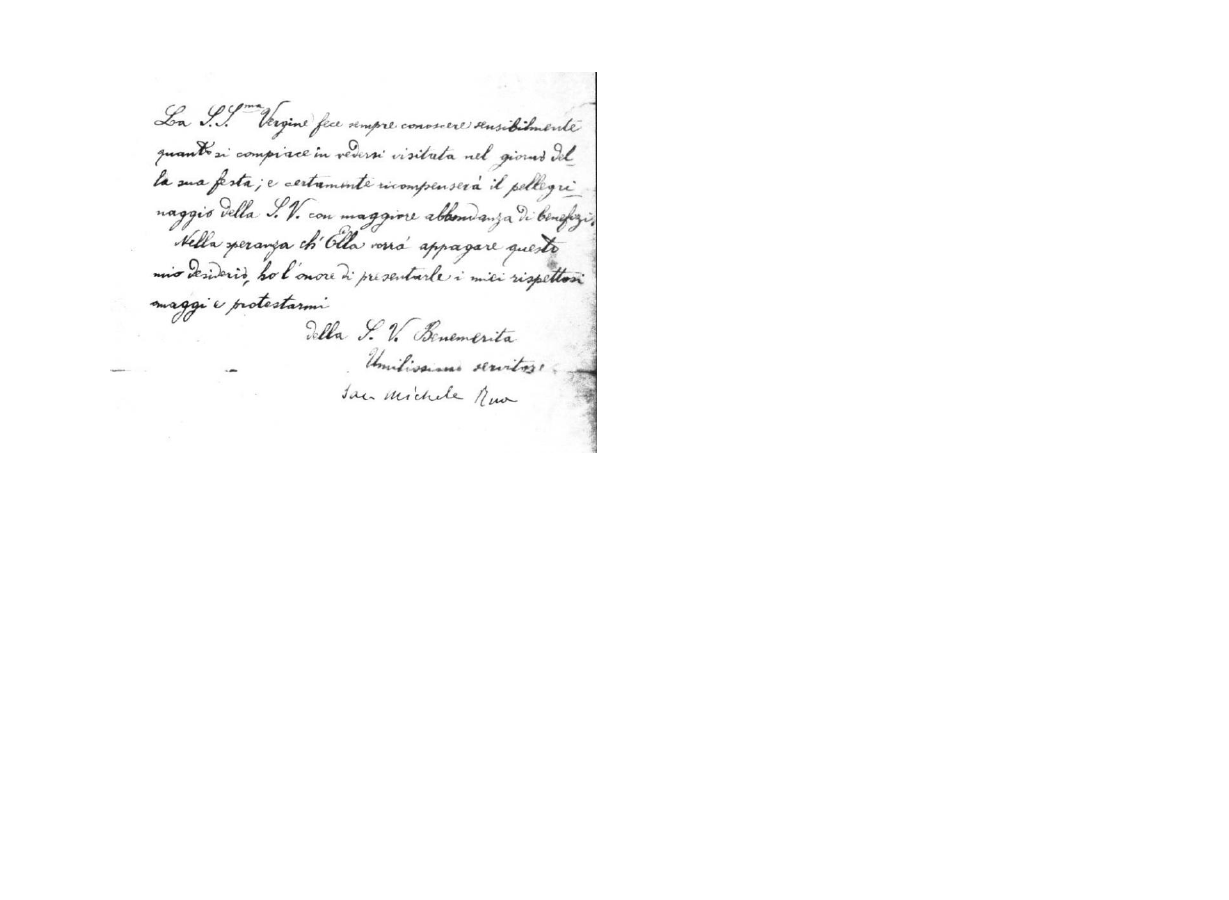 La S.S.ma Vergine fece sempre conoscere sensibilmente
quanto si compiace in vedersi visitata nel giorno del-
la sua festa; e certamente ricompenserà il pellegri-
naggio della S. V. con maggiore abbondanza di benefizi.
Nella speranza ch' Ella vorrà appagare questo
mio desiderio, ho l'onore di presentarle i miei rispettosi
omaggi e protestarmi
della S. V. Benemerita
Umilissimo servitore
Sac. Michele Rua